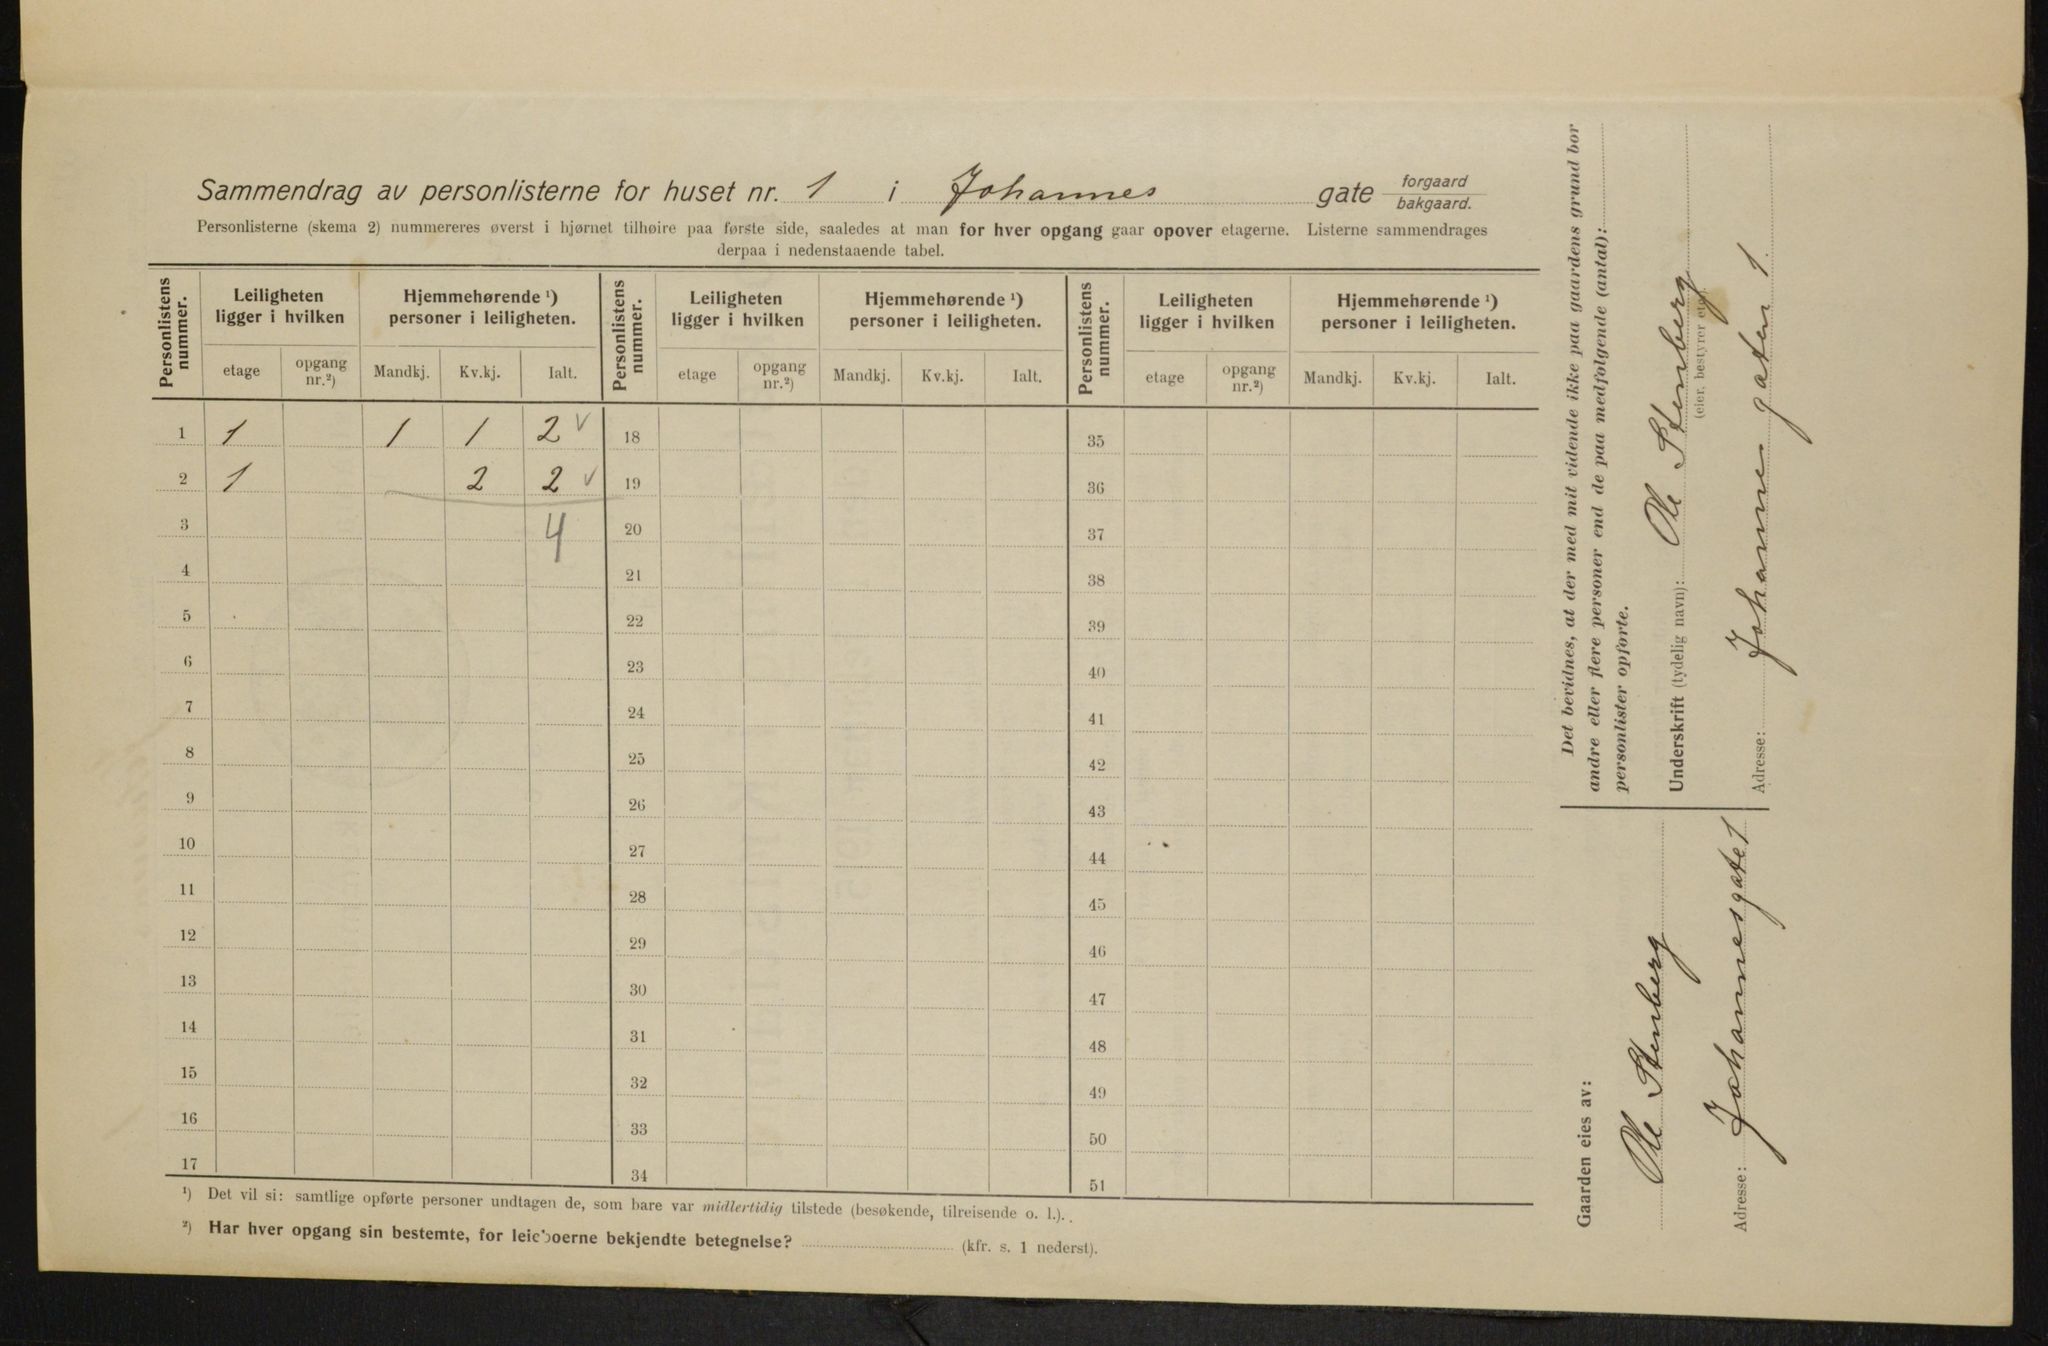 Sammendrag av personlisterne for huset nr. 1 i Johannes gate forgaard bakgaard.
Personlisterne (skema 2) nummereres øverst i hjørnet tilhøire paa første side, saaledes at man for hver opgang gaar opover etagerne. Listerne sammendrages
derpaa i nedenstaaende tabel.
Personlistens nummer. Leiligheten ligger i hvilken Hjemmehørende ¹) personer i leiligheten. Personlistens nummer. Leiligheten ligger i hvilken Hjemmehørende ¹) personer i leiligheten. Personlistens nummer. Leiligheten ligger i hvilken Hjemmehørende ¹) personer i leiligheten.
etage opgang nr.²) Mandkj. Kv.kj. Ialt. etage opgang nr.²) Mandkj. Kv.kj. Ialt. etage opgang nr.²) Mandkj. Kv.kj. Ialt.
1 1 1 1 2 √ 18 35
2 1 2 2 √ 19 36
3 4 20 37
4 21 38
5 22 39
6 23 40
7 24 41
8 25 42
9 26 43
10 27 44
11 28 45
12 29 46
13 30 47
14 31 48
15 32 49
16 33 50
17 34 51
¹) Det vil si: samtlige opførte personer undtagen de, som bare var midlertidig tilstede (besøkende, tilreisende o. l.).
²) Har hver opgang sin bestemte, for leieboerne bekjendte betegnelse? (kfr. s. 1 nederst).
Det bevidnes, at der med mit vidende ikke paa gaardens grund bor
andre eller flere personer end de paa medfølgende (antal):
personlister opførte.
Underskrift (tydelig navn): Ole Stenberg
(eier, bestyrer etc.)
Adresse: Johannes gaten 1.
Gaarden eies av:
Ole Stenberg
Adresse: Johannesgate 1